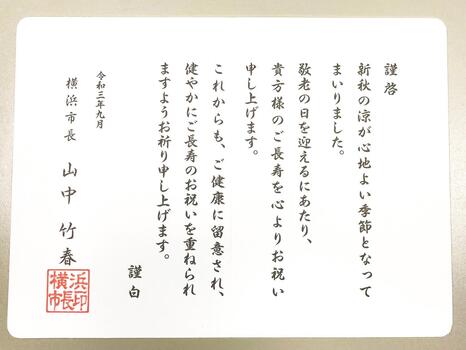 謹啓
新秋の涼が心地よい季節となって
まいりました。
敬老の日を迎えるにあたり、
貴方様のご長寿を心よりお祝い
申し上げます。
これからも、ご健康に留意され、
健やかにご長寿のお祝いを重ねられ
ますようお祈り申し上げます。
謹白
令和三年九月
横浜市長 山中竹春
横浜市長印